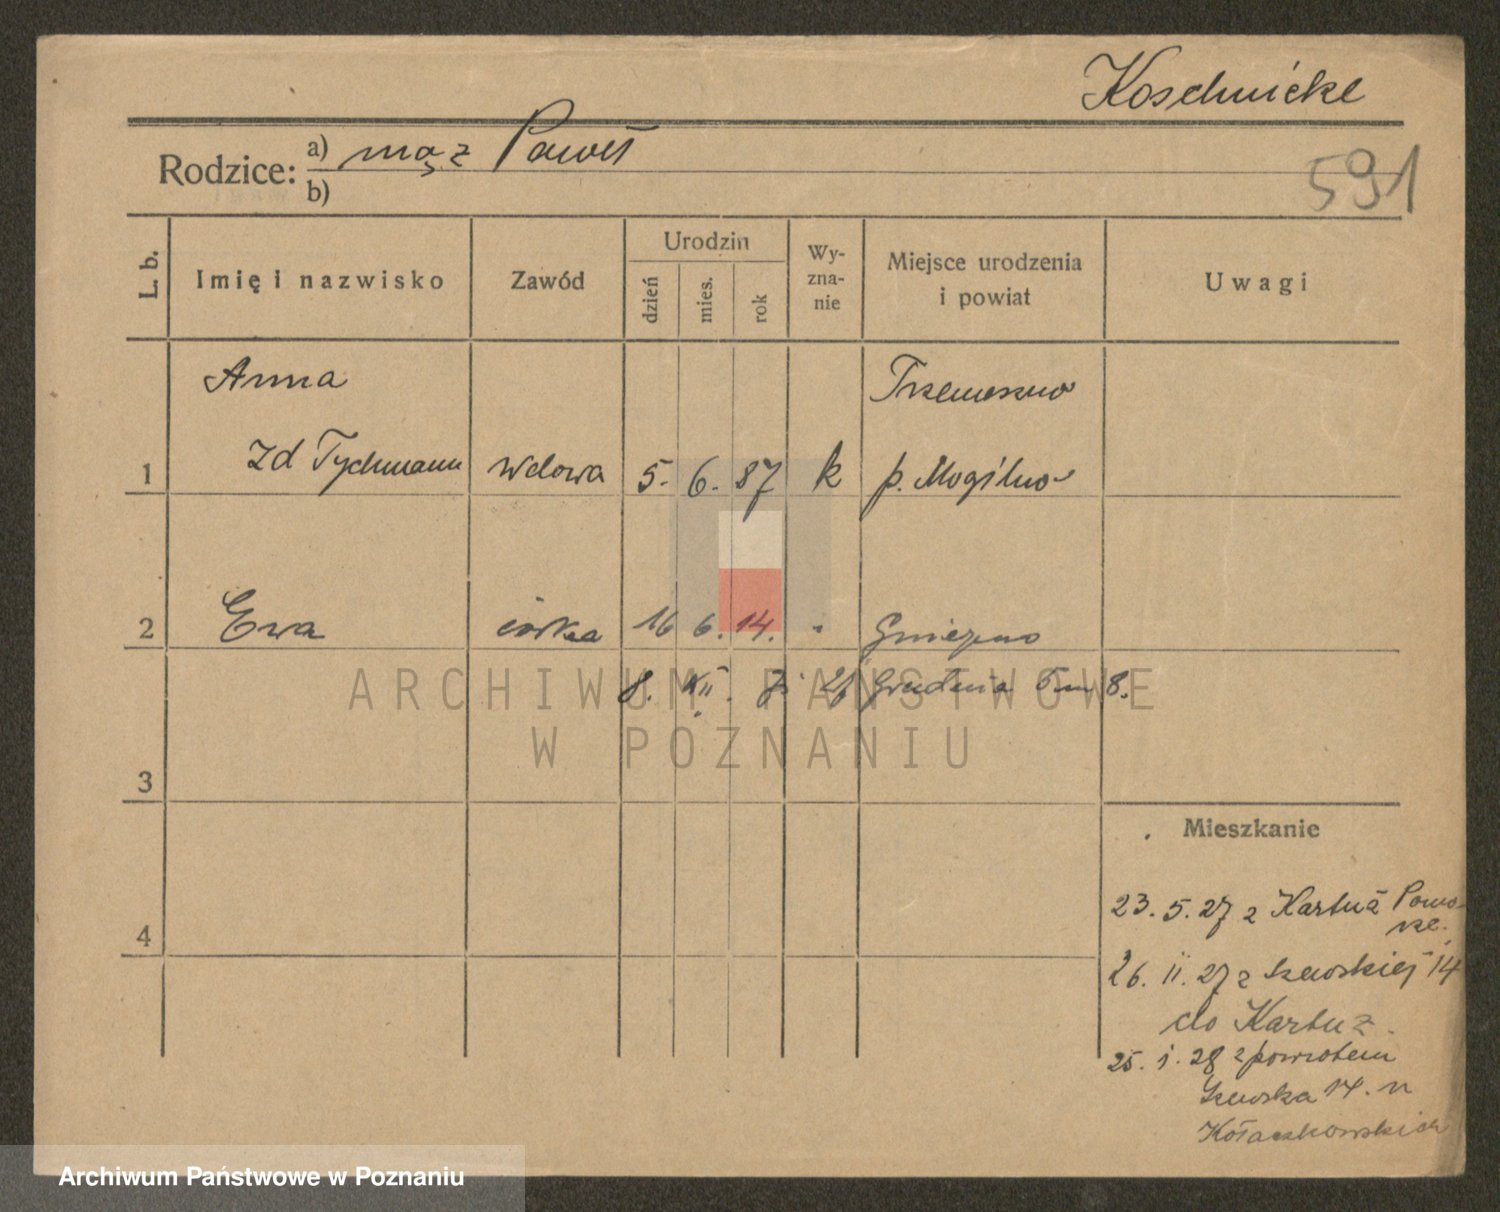 Koschnicke
Rodzice: a) mąż Paweł
b)
591
L. b.
Imię i nazwisko
Zawód
Urodzin
dzień
mies.
rok
Wy-
zna-
nie
Miejsce urodzenia
i powiat
Uwagi
Anna
Trzemeszno
1 zd Tychmann wdowa 5. 6. 87 k p. Mogilno
2 Ewa córka 16 6. 14. " Gniezno
8. XII. 26 Grudnia 8.
ARCHIWUM PAŃSTWOWE
W POZNANIU
3
Mieszkanie
23. 5. 27 z Kartuz Pomo-
rze.
4
26. II. 27 z Szewskiej 14
do Kartuz.
25. 1. 28 z powrotem
Szewska 14. u
Kołaczkowskich
Archiwum Państwowe w Poznaniu